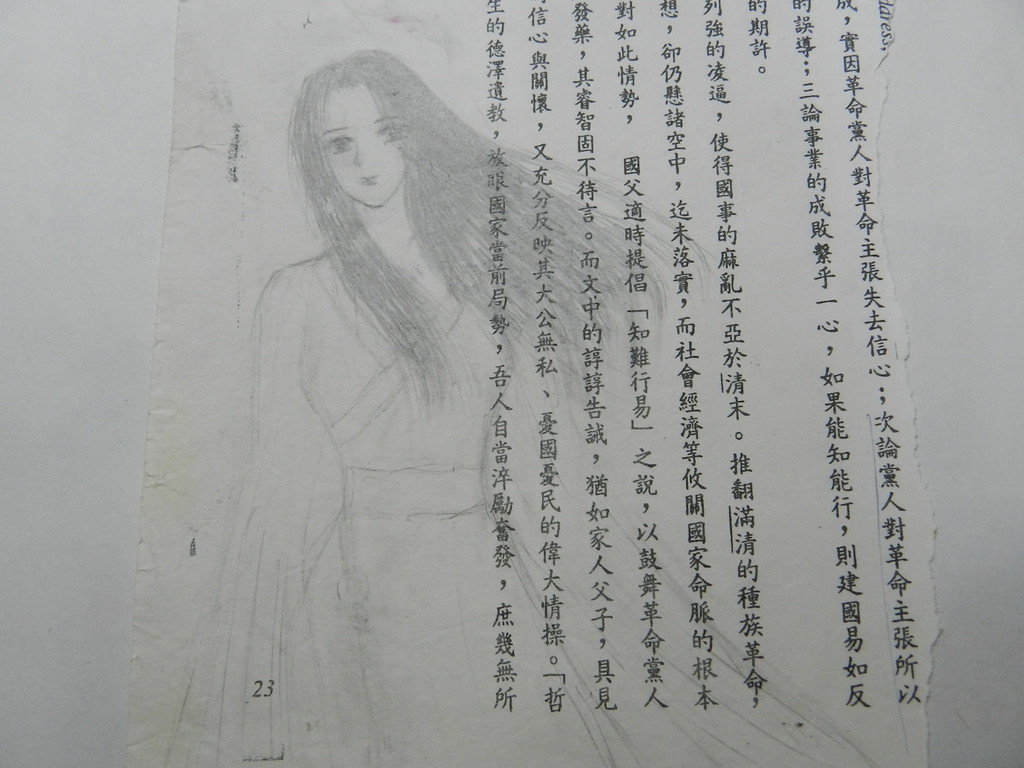 成，實因革命黨人對革命主張失去信心；次論黨人對革命主張所以
的誤導；三論事業的成敗繫乎一心，如果能知能行，則建國易如反
的期許。
列強的凌逼，使得國事的麻亂不亞於清末。推翻滿清的種族革命，
想，卻仍懸諸空中，迄未落實，而社會經濟等攸關國家命脈的根本
對如此情勢，　國父適時提倡「知難行易」之說，以鼓舞革命黨人
發藥，其睿智固不待言。而文中的諄諄告誡，猶如家人父子，具見
信心與關懷，又充分反映其大公無私、憂國憂民的偉大情操。「哲
生的德澤遺教，放眼國家當前局勢，吾人自當淬勵奮發，庶幾無所
23